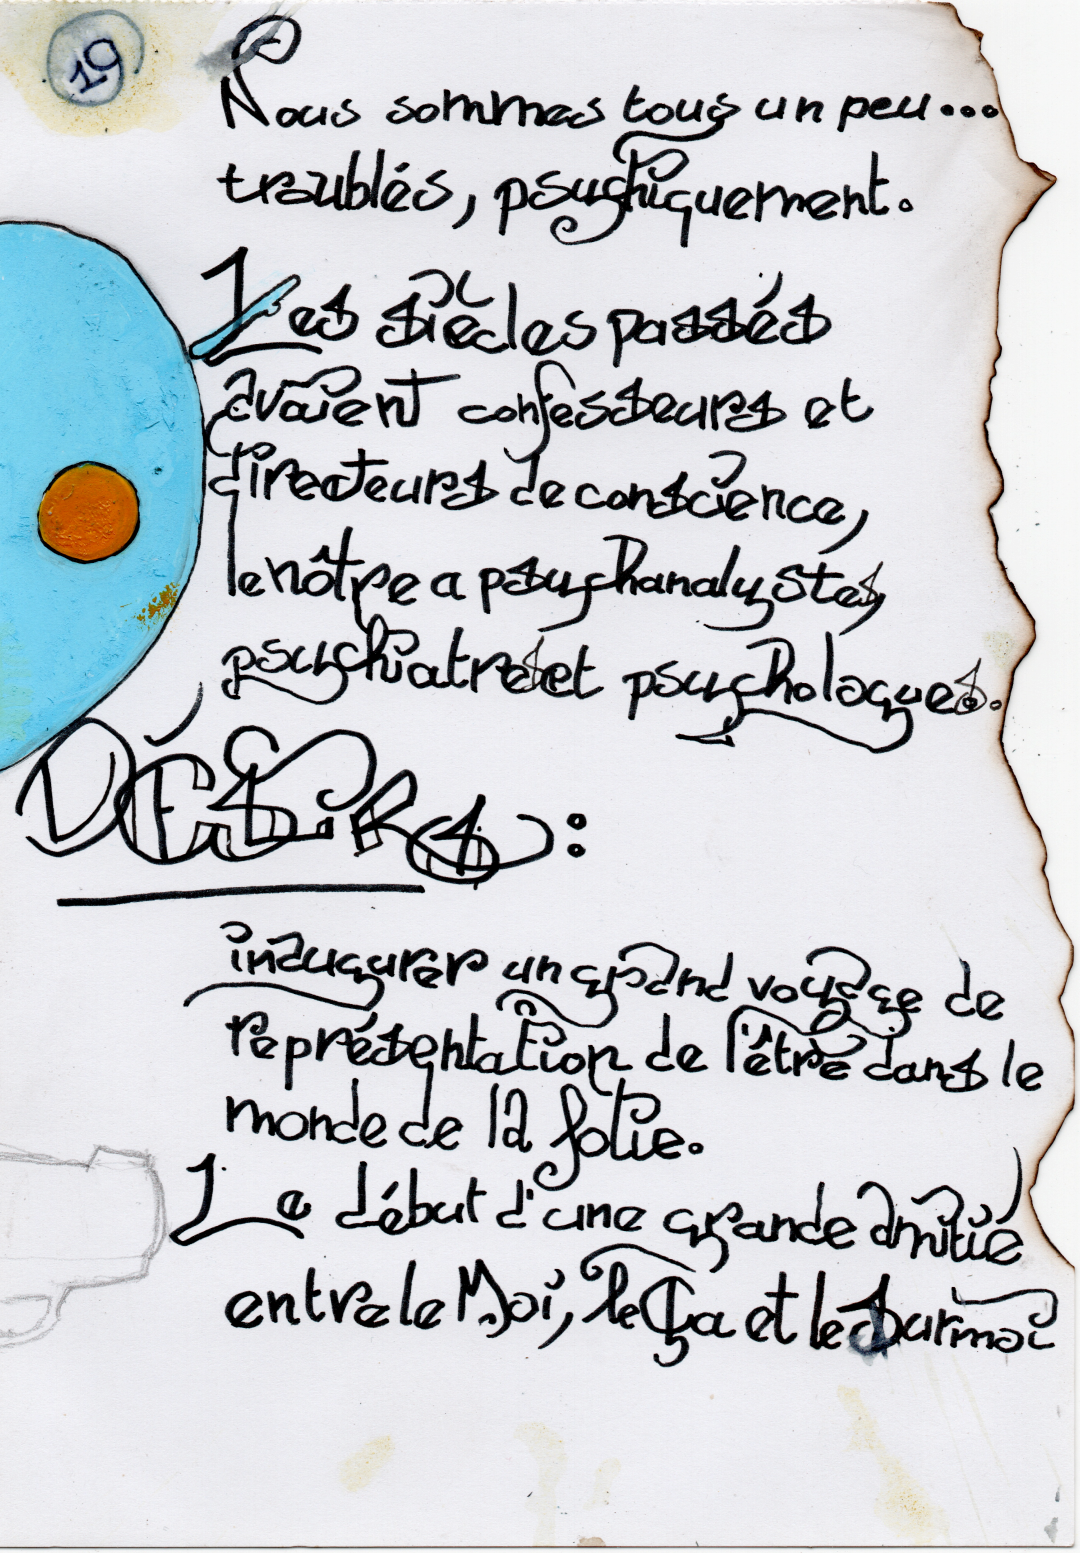 19
Nous sommes tous un peu...
troublés, psychiquement.
Les siècles passés
avaient confesseurs et
directeurs de conscience,
le nôtre a psychanalystes,
psychiatres et psychologues.
DÉSIRS :
inaugurer un grand voyage de
représentation de l'être dans le
monde de la folie.
Le début d'une grande amitié
entre le Moi, le Ça et le Surmoi